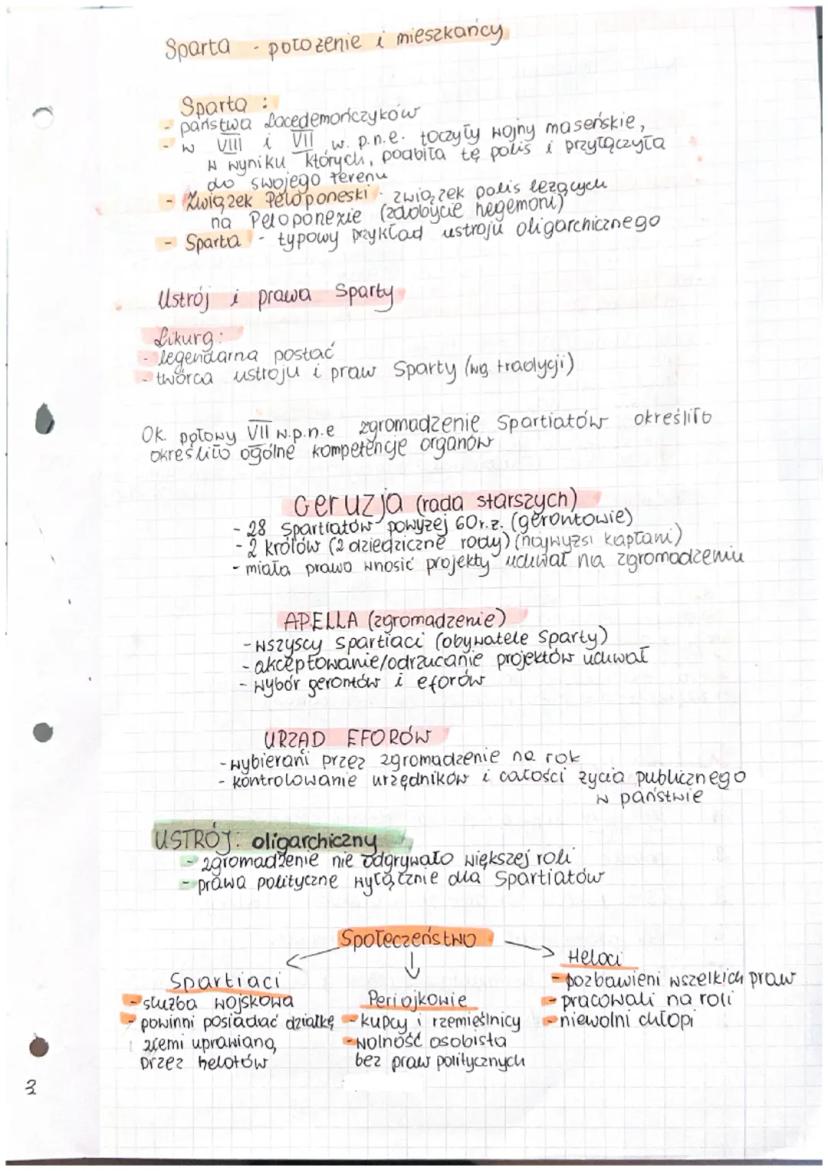 Sparta - położenie i mieszkańcy
Sparta :
- państwa Lacedemończyków
- w VIII i VII w. p.n.e. toczyły wojny maseńskie,
w wyniku których, podbiła tę polis i przyłączyła
do swojego terenu
- Związek Peloponeski - związek polis leżących
na Peloponezie (zdobycie hegemoni)
- Sparta - typowy przykład ustroju oligarchicznego
Ustrój i prawa Sparty
Likurg:
- legendarna postać
- twórca ustroju i praw Sparty (wg tradycji)
Ok. połowy VII w.p.n.e zgromadzenie Spartiatów określiło
określiło ogólne kompetencje organów
Geruzja (rada starszych)
- 28 Spartiatów powyżej 60r.ż. (gerontowie)
- 2 królów (2 dziedziczne rody) (najwyżsi kapłani)
- miała prawo wnosić projekty uchwał na zgromadzeniu
APELLA (zgromadzenie)
- wszyscy spartiaci (obywatele Sparty)
- akceptowanie/odrzucanie projektów uchwał
- wybór gerontów i eforów
URZĄD EFORÓW
- wybierani przez zgromadzenie na rok
- kontrolowanie urzędników i całości życia publicznego
w państwie
USTRÓJ: oligarchiczny
- zgromadzenie nie odgrywało większej roli
- prawa polityczne wyłącznie dla Spartiatów
Społeczeństwo
Spartiaci
- służba wojskowa
- powinni posiadać działkę
ziemi uprawianą
przez helotów
Periojkowie
- kupcy i rzemieślnicy
- wolność osobista
bez praw politycznych
Heloci
- pozbawieni wszelkich praw
- pracowali na roli
- niewolni chłopi
3